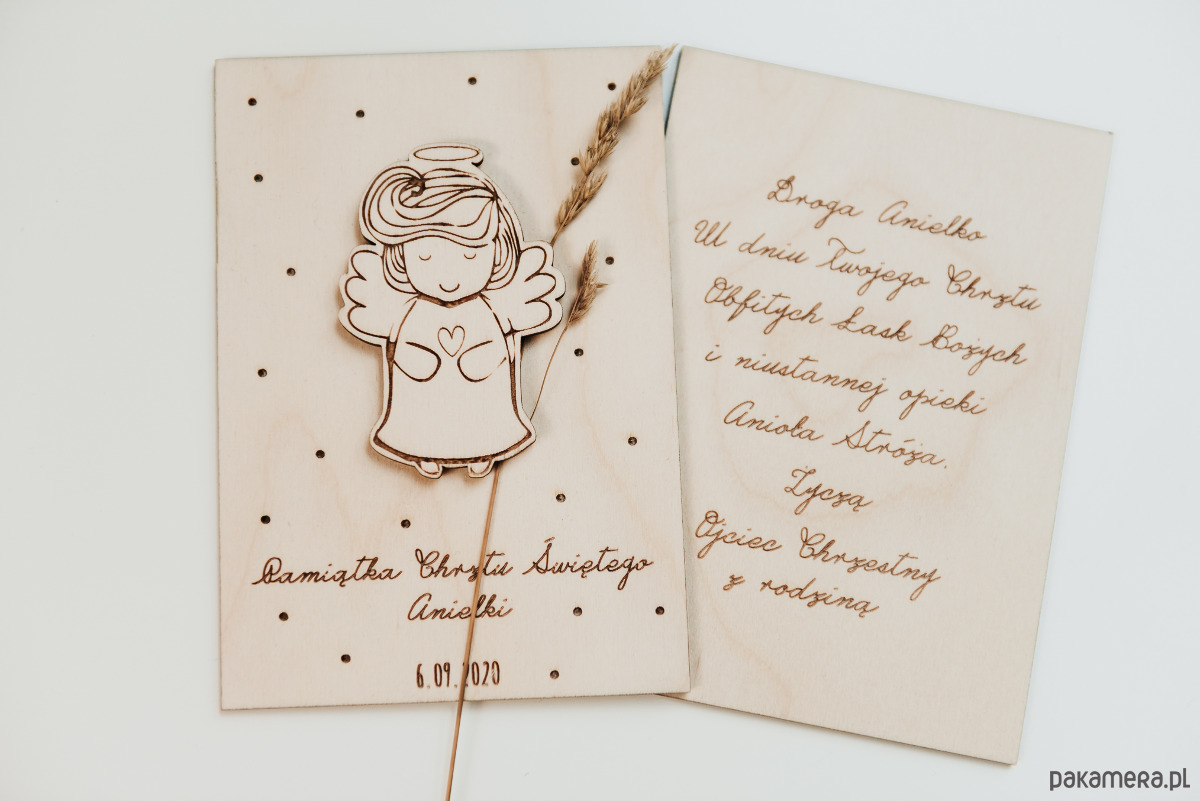 Pamiątka Chrztu Świętego
Anielki
6.09.2020
Droga Anielko
W dniu Twojego Chrztu
Obfitych Łask Bożych
i niustannej opieki
Anioła Stróża.
Życzą
Ojciec Chrzestny
z rodziną
pakamera.pl